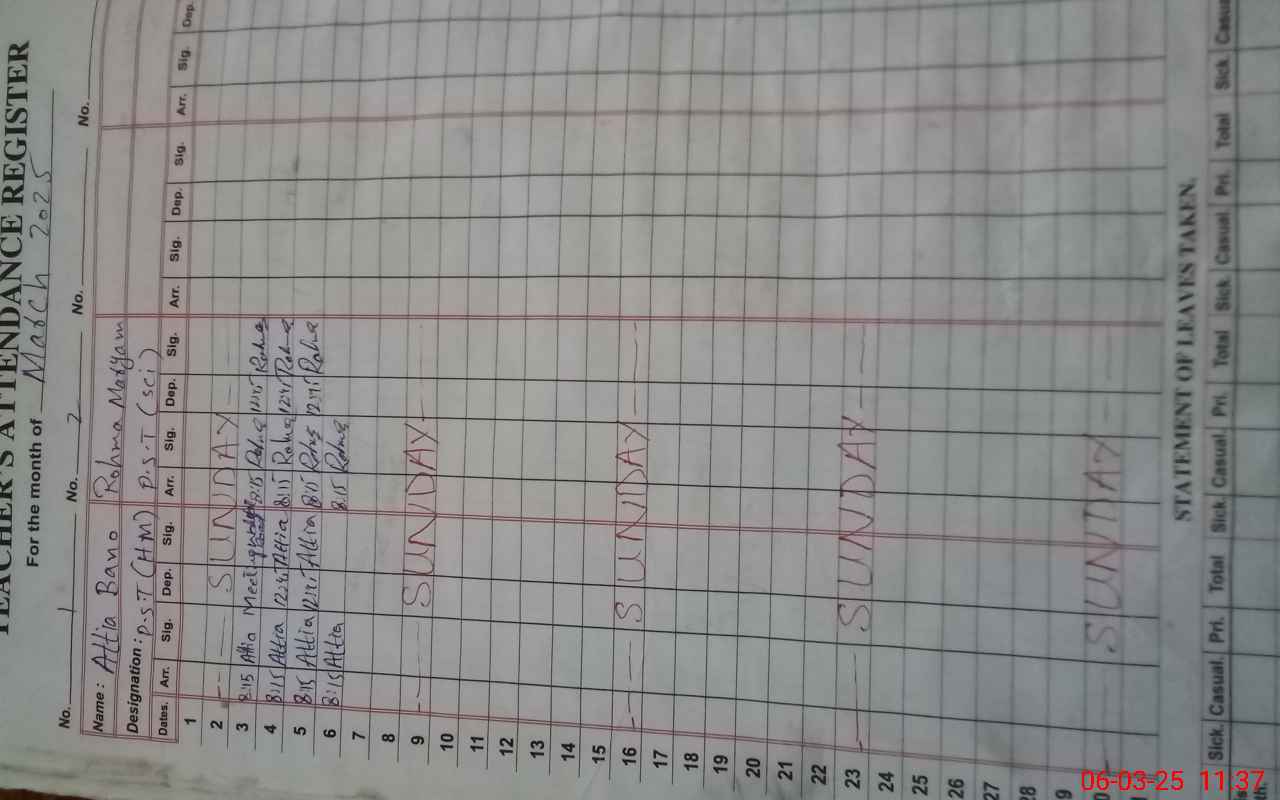 TEACHER'S ATTENDANCE REGISTER
For the month of March 2025
No. 1 No. 2 No. No.
Name: Attia Bano Rohma Maryam
Designation: P.S.T (HM) P.S.T (Sci)
Dates. Arr. Sig. Dep. Sig. Arr. Sig. Dep. Sig. Arr. Sig. Dep. Sig. Arr. Sig. Dep.
1
2 SUNDAY
3 8:15 Attia Meeting 8:15 Rohma 12:45 Rohma
4 8:15 Attia 12:45 Attia 8:15 Rohma 12:45 Rohma
5 8:15 Attia 12:45 Attia 8:15 Rohma 12:45 Rohma
6 8:15 Attia 8:15 Rohma
7
8
9 SUNDAY
10
11
12
13
14
15
16 SUNDAY
17
18
19
20
21
22
23 SUNDAY
24
25
26
27
28
9
0 SUNDAY
STATEMENT OF LEAVES TAKEN.
Sick. Casual. Pri. Total Sick. Casual. Pri. Total Sick. Casual Pri. Total Sick. Casu
06-03-25 11:37